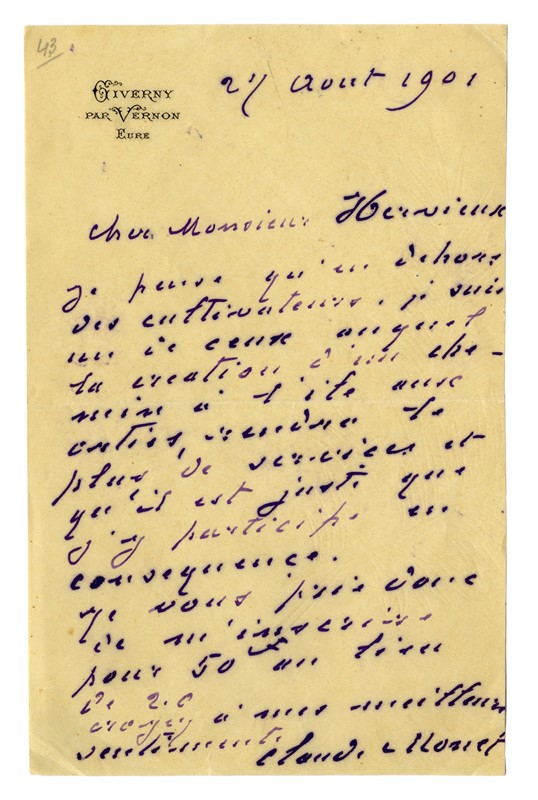 43
GIVERNY
PAR VERNON
EURE
27 Aout 1901
cher Monsieur Hervieux
Je pense qu'en dehors
des cultivateurs, je suis
un de ceux auquel
la creation d'un che-
min à l'ile aux
orties, rendra le
plus de services et
qu'il est juste que
j'y participe en
consequence.
Je vous prie donc
de m'inscrire
pour 50 F au lieu
de 20
croyez à mes meilleurs
sentiments
Claude Monet